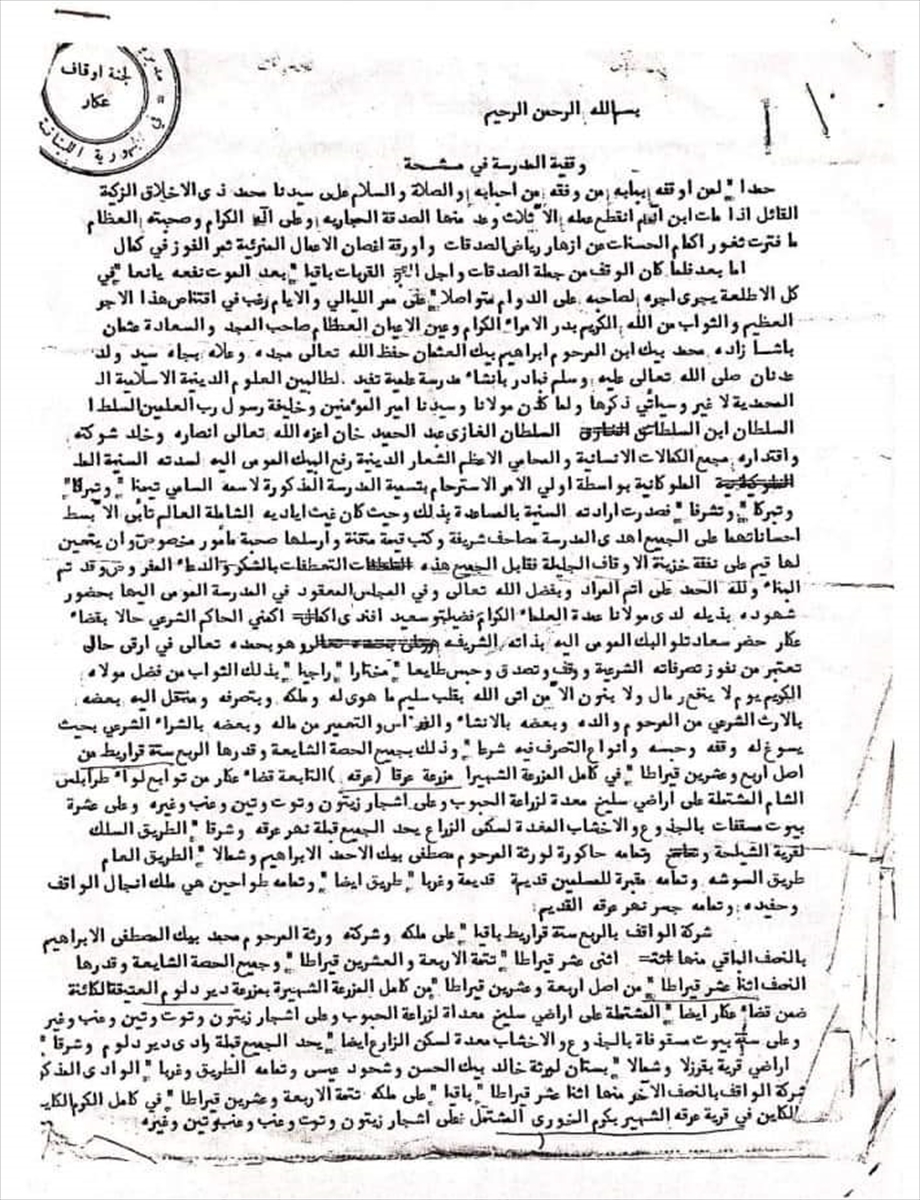 لجنة اوقاف
عكار
في الجمهورية اللبنانية
بسم الله الرحمن الرحيم
وقفية المدرسة في مشحة
حمدا" لمن اوقفه ببابه من وفقه من احبابه والصلاة والسلام على سيدنا محمد ذى الاخلاق الزكية
القائل اذا مات ابن ادم انقطع عمله الا ثلاث وعد منها الصدقة الجاريه وعلى اله الكرام وصحبته العظام
ما فترت ثغور اكمام الحسنات عن ازهار رياض الصدقات واورقة اغصان الاعمال المنرئية ثمر الفوز في كمال
اما بعد فلما كان الوقف من جملة الصدقات واجل القربات باقيا" بعد الموت نفعه يانعا" في
كل الاطلعة يجرى اجره لصاحبه على الدوام متواصلا" على ممر الليالي والايام رغب في اقتناص هذا الاجر
العظيم والثواب من الله الكريم بدر الامراء الكرام وعين الاعيان العظام صاحب المجد والسعادة عثمان
باشا زاده محمد بيك ابن المرحوم ابراهيم بيك العثمان حفظ الله تعالى مجده وعلاه بجاه سيد ولد
عدنان صلى الله تعالى عليه وسلم فبادر بانشاء مدرسة علمية تفيد لطالبين العلوم الدينية الاسلامية ال
المحمدية لا غير وسيأتي ذكرها ولما كان مولانا وسيدنا امير المؤمنين وخليفة رسول رب العلمين السلطا
السلطان ابن السلطان السلطان الغازى عبد الحميد خان اعزه الله تعالى انصاره وخلد شوكته
واقتداره مجمع الكمالات الانسانية والمحامي الاعظم الشعار الدينية رفع البيك المومى اليه لسدته السنية الط
الملوكانية بواسطة اولي الامر الاسترحام بتسمية المدرسة المذكورة لاسمه السامي تيمنا" وتبركا"
وتبركا" وتشرفا" فصدرت ارادته السنية بالمساعدة بذلك وحيث كان غيث اياديه الشاملة العالم تأبى الا بسط
احساناتهما على الجميع اهدى المدرسة مصاحف شريفة وكتب قيمة مقتنة وارسلها صحبة مأمور مخصوص وان يتعين
لها قيم على نفقة خزينة الاوقاف الجليلة تقابل الجميع هذه التعطفات بالشكر والدعاء المفروض وقد تم
البناء ولله الحمد على اتم المراد وبفضل الله تعالى وفي المجلس المعقود في المدرسة المومى اليها بحضور
شهوده بذيله لدى مولانا عدة العلماء الكرام فضيلتو سعيد افندى اكمني الحاكم الشرعي حالا بقضاء
عكار حضر سعادتلو البك المومى اليه بذاته الشريفه وهو بحمده تعالى في ارقى حالى
تعتبر من نفوز تصرفاته الشرعية ووقف وتصدق وحبس طايعا" مختارا" راجيا" بذلك الثواب من فضل مولاه
الكريم يوم لا ينفع مال ولا بنون الا من اتى الله بقلب سليم ما هوى له وملكه وبتصرفه ومنتقل اليه بعضه
بالارث الشرعي من المرحوم والده وبعضه بالانشاء والغراس والتعمير من ماله وبعضه بالشراء الشرعي بحيث
يسوغ له وقفه وحبسه وانواع التصرف فيه شرعا" وذلك بجميع الحصة الشايعة وقدرها الربع ستة قراريط من
اصل اربع وعشرين قيراطا" في كامل المزرعة الشهيرا مزرعة عرقا (عرقه) التابعة قضاء عكار من توابع لواء طرابلس
الشام المشتملة على اراضي سليخ معدة لزراعة الحبوب وعلى اشجار زيتون وتوت وتين وعنب وغيره وعلى عشرة
بيوت مسقفات بالجذوع والاخشاب المغدة لسكن الزراع يحد الجميع قبلة نهر عرقه وشرقا" الطريق السلك
لقرية الشيلحة وتمامه حاكورة لورثة المرحوم مصطفى بيك الاحمد الابراهيم وشمالا" الطريق العام
طريق السوشه وتمامه مقبرة للمسلمين قديمة قديمة وغربا" طريق ايضا" وتمامه طواحين هي ملك انجال الواقف
وحفيده وتمامه جسر نهر عرقه القديم
شركة الواقف بالربع ستة قراريط باقيا" على ملكه وشركته ورثة المرحوم محمد بيك المصطفى الابراهيم
بالنصف الباقي منها اثنى عشر قيراطا" تتمة الاربعة والعشرين قيراطا" وجميع الحصة الشايعة وقدرها
النصف اثنا عشر قيراطا" من اصل اربعة وعشرين قيراطا" من كامل المزرعة الشهيرة بمزرعة دير دلوم العتيقة الكائنة
ضمن قضاء عكار ايضا" المشتملة على اراضي سليخ معداة لزراعة الحبوب وعلى اشجار زيتون وتوت وتين وعنب وغير
وعلى ستة بيوت مسقوفاة بالجذوع والاخشاب معدة لسكن الزارع ايضا" يحد الجميع قبلة وادى دير دلوم وشرقا"
اراضي قرية بقرزلا وشمالا" بستان لورثة خالد بيك الحسن وشحود عيسى وتمامه الطريق وغربا" الوادى المذكو
شركة الواقف بالنصف الاخر منها اثنا عشر قيراطا" باقيا" على ملكه تتمة الاربعة وعشرين قيراطا" في كامل الكرم الكاين
الكاين في قرية عرقه الشهير بكرم الخورى المشتمل على اشجار زيتون وتوت وعنب وعنب وتين وغيره